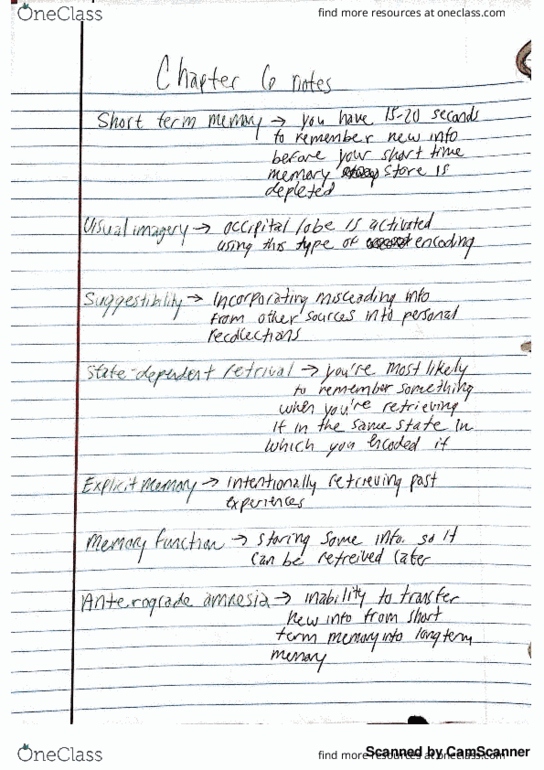 OneClass
find more resources at oneclass.com
Chapter 6 notes
Short term memory → you have 15-20 seconds
to remember new info
before your short time
memory store is
depleted
Visual imagery → occipital lobe is activated
using this type of encoding
Suggestibility → Incorporating misleading info
from other sources into personal
recollections
State-dependent retrival → you're most likely
to remember something
when you're retrieving
it in the same state in
which you encoded it
Explicit memory → intentionally retrieving past
experiences
Memory function → storing some info. so it
can be retreived later
Anterograde amnesia → inability to transfer
new info from short
term memory into long term
memory
OneClass
find more resources at oneclass.com
Scanned by CamScanner